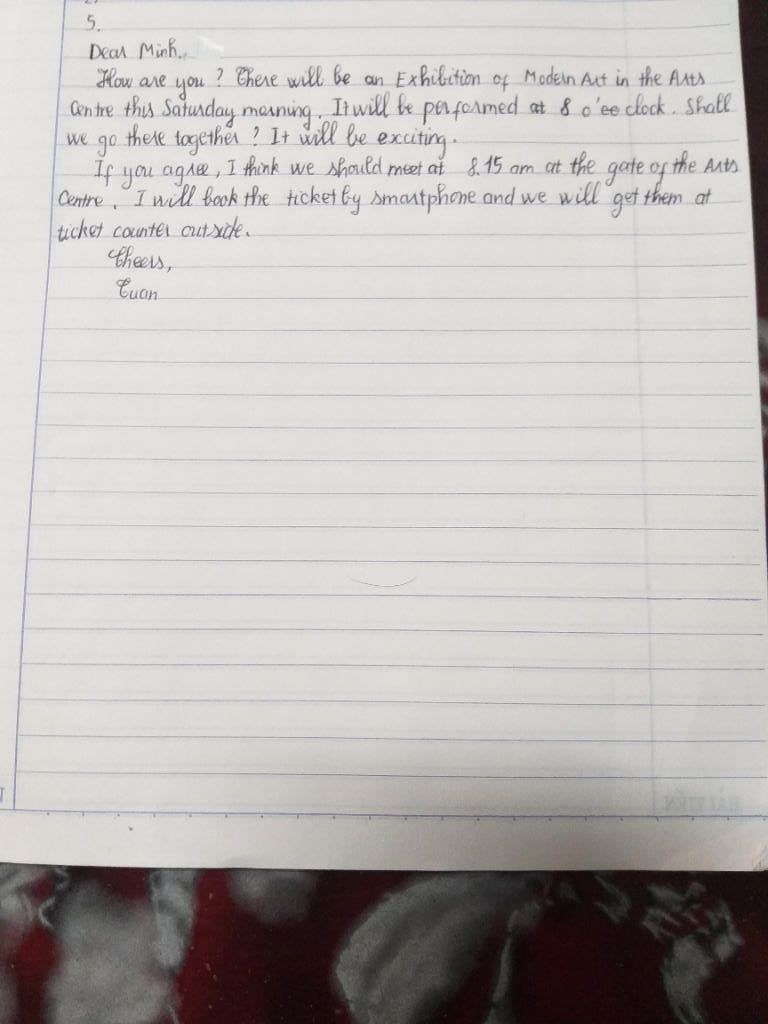 5.
Dear Minh.,
How are you ? There will be an Exhibition of Modern Art in the Arts
Centre this Saturday morning. It will be performed at 8 o'ee clock. Shall
we go there together ? It will be exciting.
If you agree, I think we should meet at 8.15 am at the gate of the Arts
Centre. I will book the ticket by smartphone and we will get them at
ticket counter outside.
Cheers,
Tuan